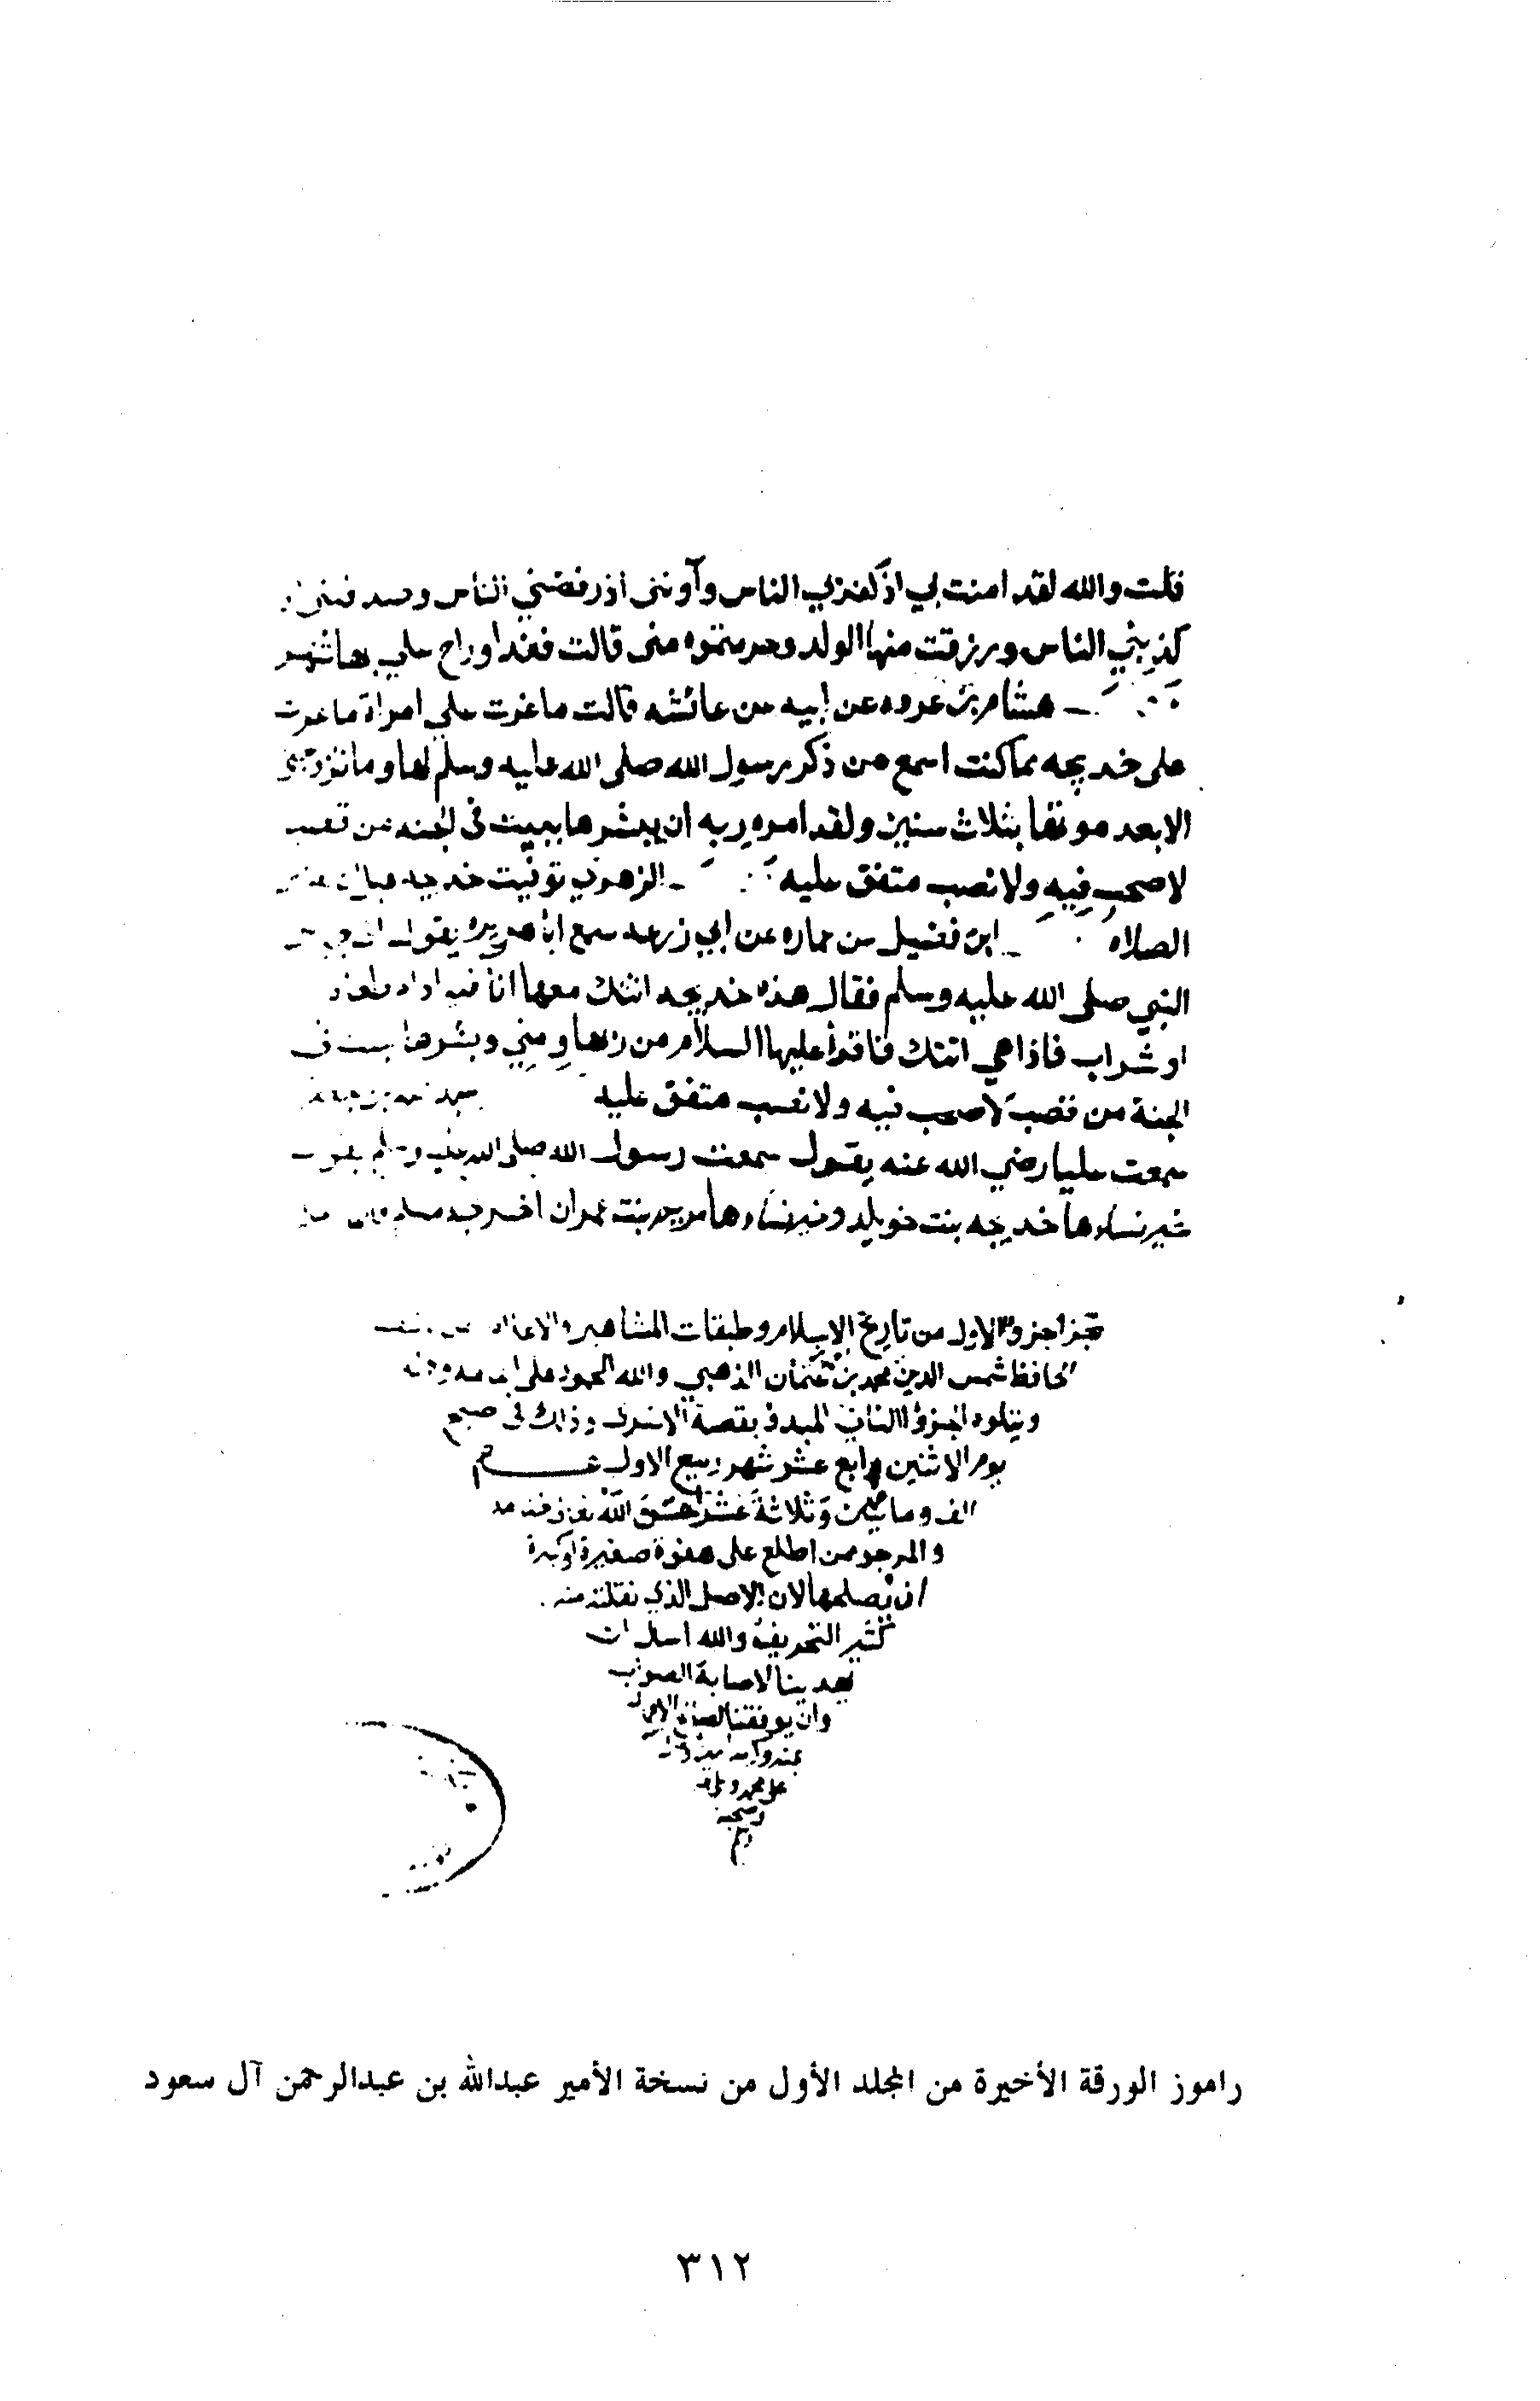 قلت والله لقد امنت بي اذ كفر بي الناس وآوتني اذ رفضني الناس وصدقتني
كذبني الناس ورزقت منها الولد وحرمتموه مني قالت فغدا وراح علي بها شهر
هشام بن عروه عن ابيه عن عائشه قالت ما غرت علي امراة ما غرت
على خديجه مما كنت اسمع من ذكر رسول الله صلى الله عليه وسلم لها وما تزوجني
الا بعد موتها بثلاث سنين ولقد امره ربه ان يبشرها ببيت في الجنه من قصب
لا صخب فيه ولا نصب متفق عليه الزهري توفيت خديجه قبل ان
الصلاه ابن فضيل عن عماره عن ابي زرعه سمع ابا هريره يقول اتى جبريل
النبي صلى الله عليه وسلم فقال هذه خديجه اتتك معها انا فيه ادام طعام
او شراب فاذا هي اتتك فاقرأ عليها السلام من ربها ومني وبشرها ببيت في
الجنة من قصب لا صخب فيه ولا نصب متفق عليه
سمعت عليا رضي الله عنه يقول سمعت رسول الله صلى الله عليه وسلم يقول
خير نساءها خديجه بنت خويلد وخير نساءها مريم بنت عمران اخرجه مسلم
نجز الجزؤ الاول من تاريخ الإسلام وطبقات المشاهير والاعلام
الحافظ شمس الدين محمد بن عثمان الذهبي والله المحمود على
ويتلوه الجزؤ الثاني المبدؤ بقصة الاسرى وذلك في صبح
يوم الاثنين رابع عشر شهر ربيع الاول عـــام
الف ومائتين وثلاثة عشر الله
والمرجو ممن اطلع على هفوة صغيرة او كبيرة
ان يصلحها لان الاصل الذي نقلته منه
كثير التحريف والله اسال ان
يهدينا لاصابة الصواب
وان يوفقنا
بمنه وكرمه
على محمد وآله
وصحبه
م
راموز الورقة الأخيرة من المجلد الأول من نسخة الأمير عبدالله بن عبدالرحمن آل سعود
٣١٢